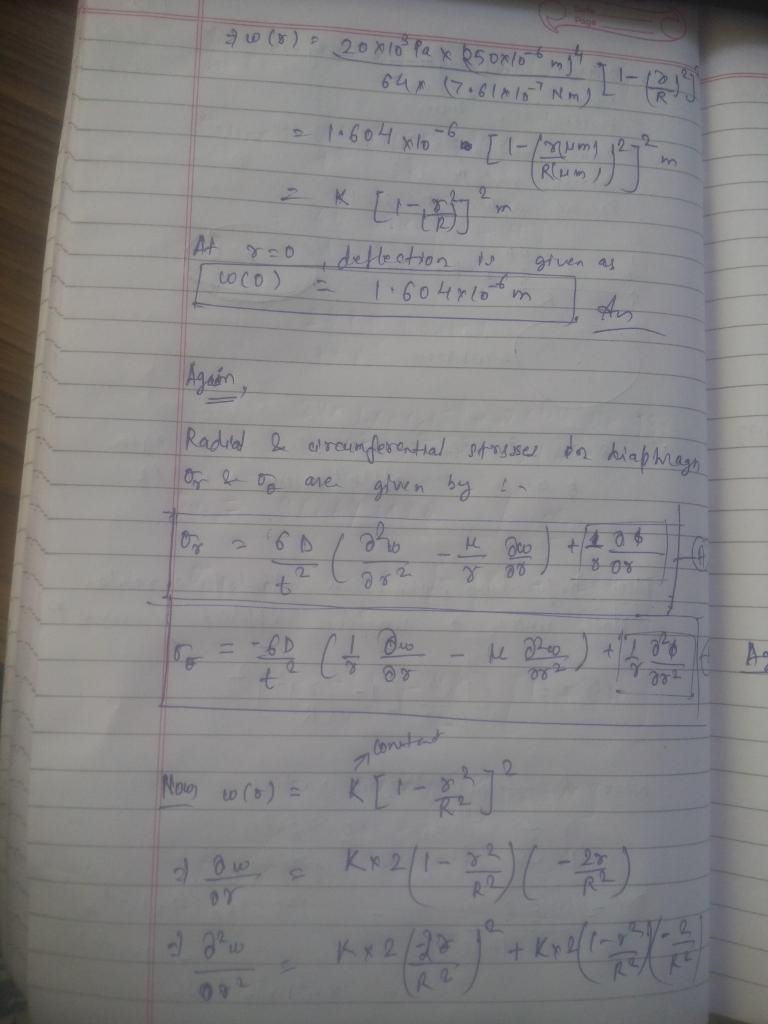 Date
Page
⇒ w(r) = 20×10³ Pa × (250×10⁻⁶ m)⁴ / 64 × (7.61×10⁻⁷ Nm) [1-(r/R)²]²
= 1.604 ×10⁻⁶ [1-(r(μm)/R(μm))²]² m
= K [1-r²/(R)]² m
At r=0, deflection is given as
w(0) = 1.604×10⁻⁶ m Ans
Again,
Radial & circumferential stresses for Diaphragm
σr & σθ are given by :-
σr = 6D/t² (∂²w/∂r² - μ/r ∂w/∂r) + 1/r ∂ϕ/∂r - A
σθ = -6D/t² (1/r ∂w/∂r - μ ∂²w/∂r²) + 1/r ∂²ϕ/∂r²
constant
Now w(r) = K[1-r²/R²]²
⇒ ∂w/∂r = K×2(1-r²/R²)(-2r/R²)
⇒ ∂²w/∂r² = K×2(-2r/R²)² + K×2(1-r²/R²)(-2/R²)